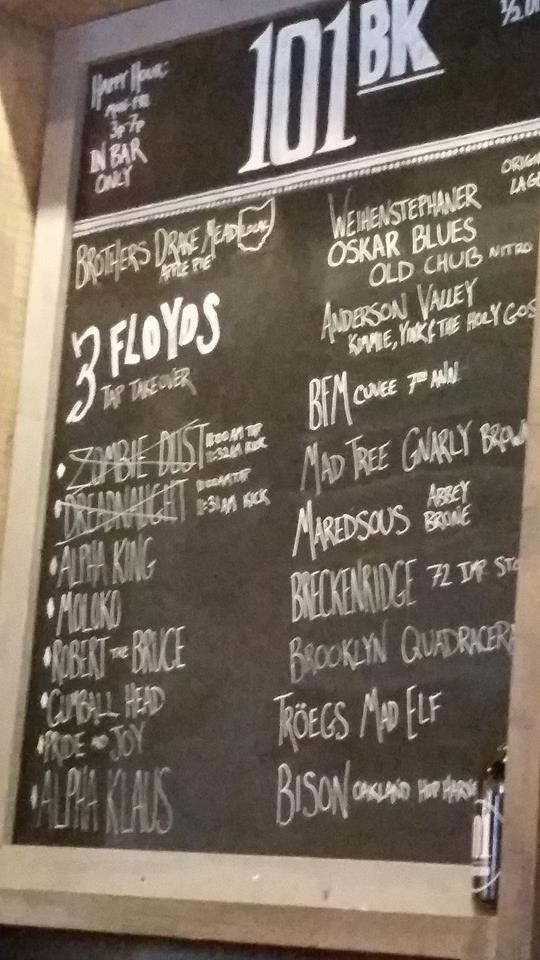 101 BK
1/2 O
Happy Hour:
Mon-Fri
3p-7p
IN BAR
ONLY
BROTHERS DRAKE MEAD LOCAL
APPLE PIE
3 FLOYDS
TAP TAKEOVER
ZOMBIE DUST 11:00 AM TAP
11:32AM KICK
DREADNAUGHT 11:00AM TAP
11:31AM KICK
ALPHA KING
MOLOKO
ROBERT THE BRUCE
GUMBALL HEAD
PRIDE AND JOY
ALPHA KLAUS
WEIHENSTEPHANER ORIGIN
LAGE
OSKAR BLUES
OLD CHUB NITRO
ANDERSON VALLEY
KIMMIE, YINK & THE HOLY GOS
BFM CUVEE 7TH ANN.
MAD TREE GNARLY BROW
MAREDSOUS ABBEY
BRUNE
BRECKENRIDGE 72 IMP. STO
BROOKLYN QUADRACERA
TRÖEGS MAD ELF
BISON OAKLAND HOP HARV